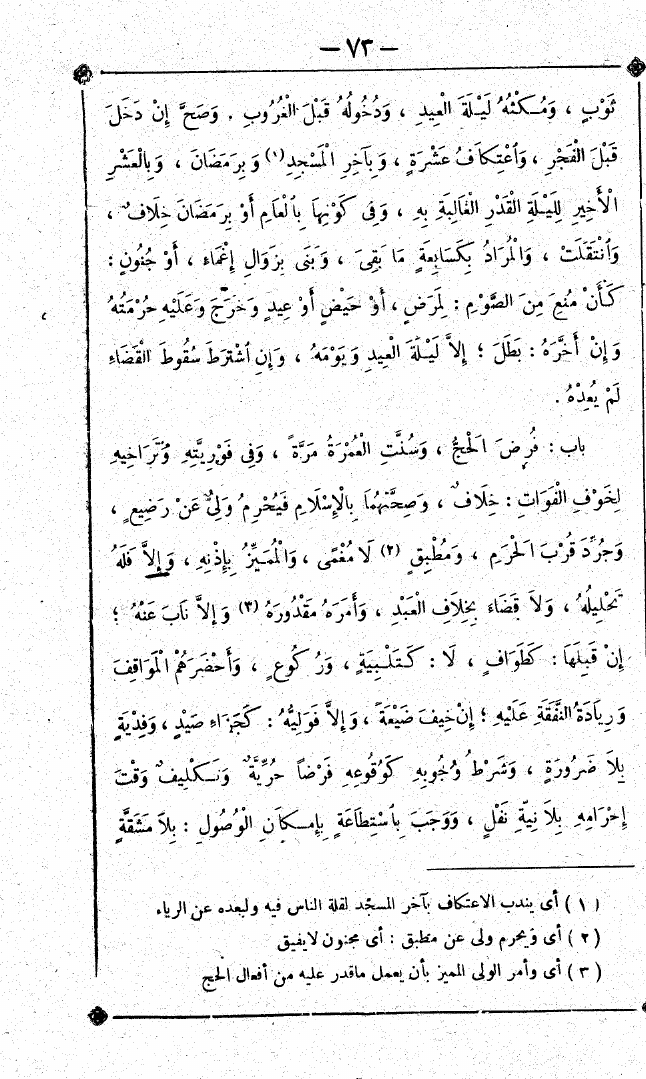 — ٧٣ —
ثَوْبٍ ، وَمُكْثُهُ لَيْلَةَ الْعِيدِ ، وَدُخُولُهُ قَبْلَ الْغُرُوبِ . وَصَحَّ إِنْ دَخَلَ
قَبْلَ الْفَجْرِ ، وَاعْتِكَافُ عَشْرَةٍ ، وَبِآخِرِ الْمَسْجِدِ (١) وَبِرَمَضَانَ ، وَبِالْعَشْرِ
الْأَخِيرِ لِلَيْلَةِ الْقَدْرِ الْغَالِبَةِ بِهِ ، وَفِى كَوْنِهَا بِالْعَامِ أَوْ بِرَمَضَانَ خِلَافٌ ،
وَانْتَقَلَتْ ، وَالْمُرَادُ بِكَسَابِعَةٍ مَا بَقِىَ ، وَبَنَى بِزَوَالِ إِغْمَاءٍ ، أَوْ جُنُونٍ :
كَأَنْ مُنِعَ مِنَ الصَّوْمِ : لِمَرَضٍ ، أَوْ حَيْضٍ أَوْ عِيدٍ وَخَرَجَ وَعَلَيْهِ حُرْمَتُهُ
وَإِنْ أَخَّرَهُ : بَطَلَ ؛ إِلاَّ لَيْلَةَ الْعِيدِ وَيَوْمَهُ ، وَإِنِ اشْتَرَطَ سُقُوطَ الْقَضَاءِ
لَمْ يُفِدْهُ .
باب : فُرِضَ الْحَجُّ ، وَسُنَّتِ الْعُمْرَةُ مَرَّةً ، وَفِى فَوْرِيَّتِهِ وَتَرَاخِيهِ
لِخَوْفِ الْفَوَاتِ : خِلَافٌ ، وَصِحَّتُهُمَا بِالْإِسْلَامِ فَيُحْرِمُ وَلِىٌّ عَنْ رَضِيعٍ ،
وَجُرِّدَ قُرْبَ الْحَرَمِ ، وَمُطْبِقٍ (٢) لَا مُغْمًى ، وَالْمُمَيِّزُ بِإِذْنِهِ ، وَإِلاَّ فَلَهُ
تَحْلِيلُهُ ، وَلَا قَضَاءَ بِخِلَافِ الْعَبْدِ ، وَأَمَرَهُ مَقْدُورَهُ (٣) وَإِلاَّ نَابَ عَنْهُ ؛
إِنْ قَبِلَهَا : كَطَوَافٍ ، لَا : كَتَلْبِيَةٍ ، وَرُكُوعٍ ، وَأَحْضَرَهُمُ الْمَوَاقِفَ
وَزِيَادَةُ النَّفَقَةِ عَلَيْهِ ؛ إِنْ خِيفَ ضَيْعَةً ، وَإِلاَّ فَوَلِيُّهُ : كَجَزَاءِ صَيْدٍ ، وَفِدْيَةٍ
بِلاَ ضَرُورَةٍ ، وَشَرْطُ وُجُوبِهِ كَوُقُوعِهِ فَرْضًا حُرِّيَّةٌ وَتَكْلِيفٌ وَقْتَ
إِحْرَامِهِ بِلاَ نِيَّةِ نَفْلٍ ، وَوَجَبَ بِاسْتِطَاعَةٍ بِإِمْكَانِ الْوُصُولِ : بِلاَ مَشَقَّةٍ
(١) أى يندب الاعتكاف بآخر المسجد لقلة الناس فيه ولبعده عن الرياء
(٢) أى ويحرم ولى عن مطبق : أى مجنون لايفيق
(٣) أى وأمر الولى المميز بأن يعمل ماقدر عليه من أفعال الحج